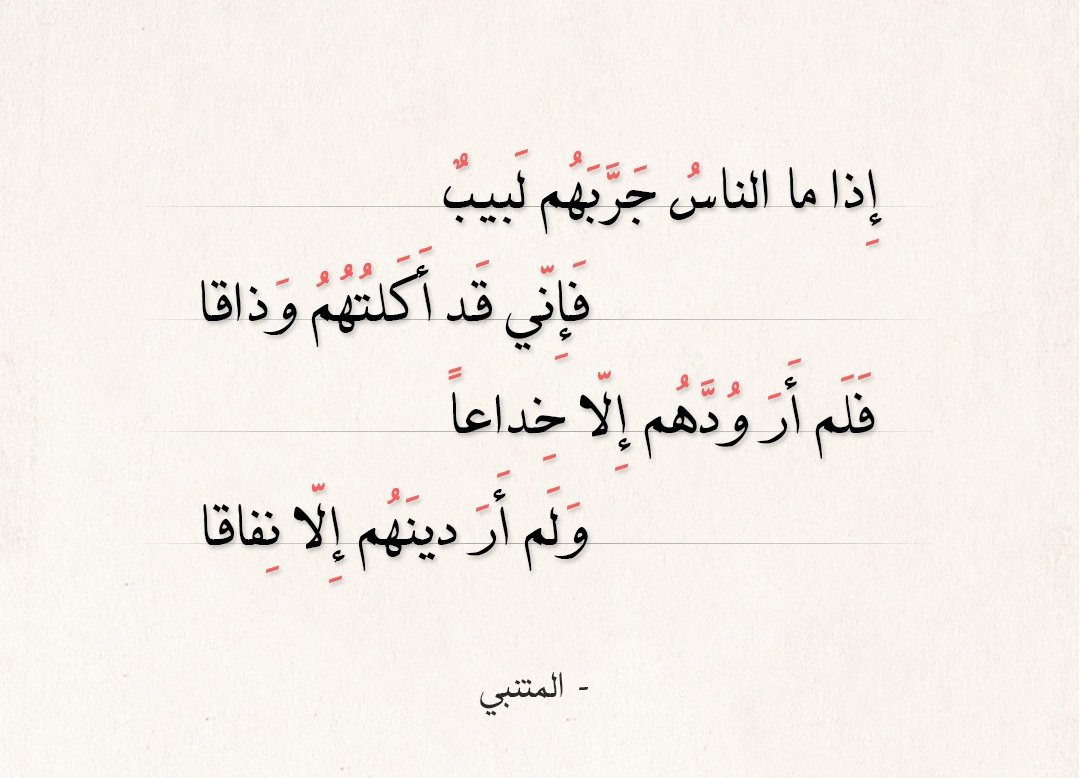 إِذا ما الناسُ جَرَّبَهُم لَبيبٌ
فَإِنّي قَد أَكَلتُهُمُ وَذاقا
فَلَم أَرَ وُدَّهُم إِلّا خِداعاً
وَلَم أَرَ دينَهُم إِلّا نِفاقا
- المتنبي